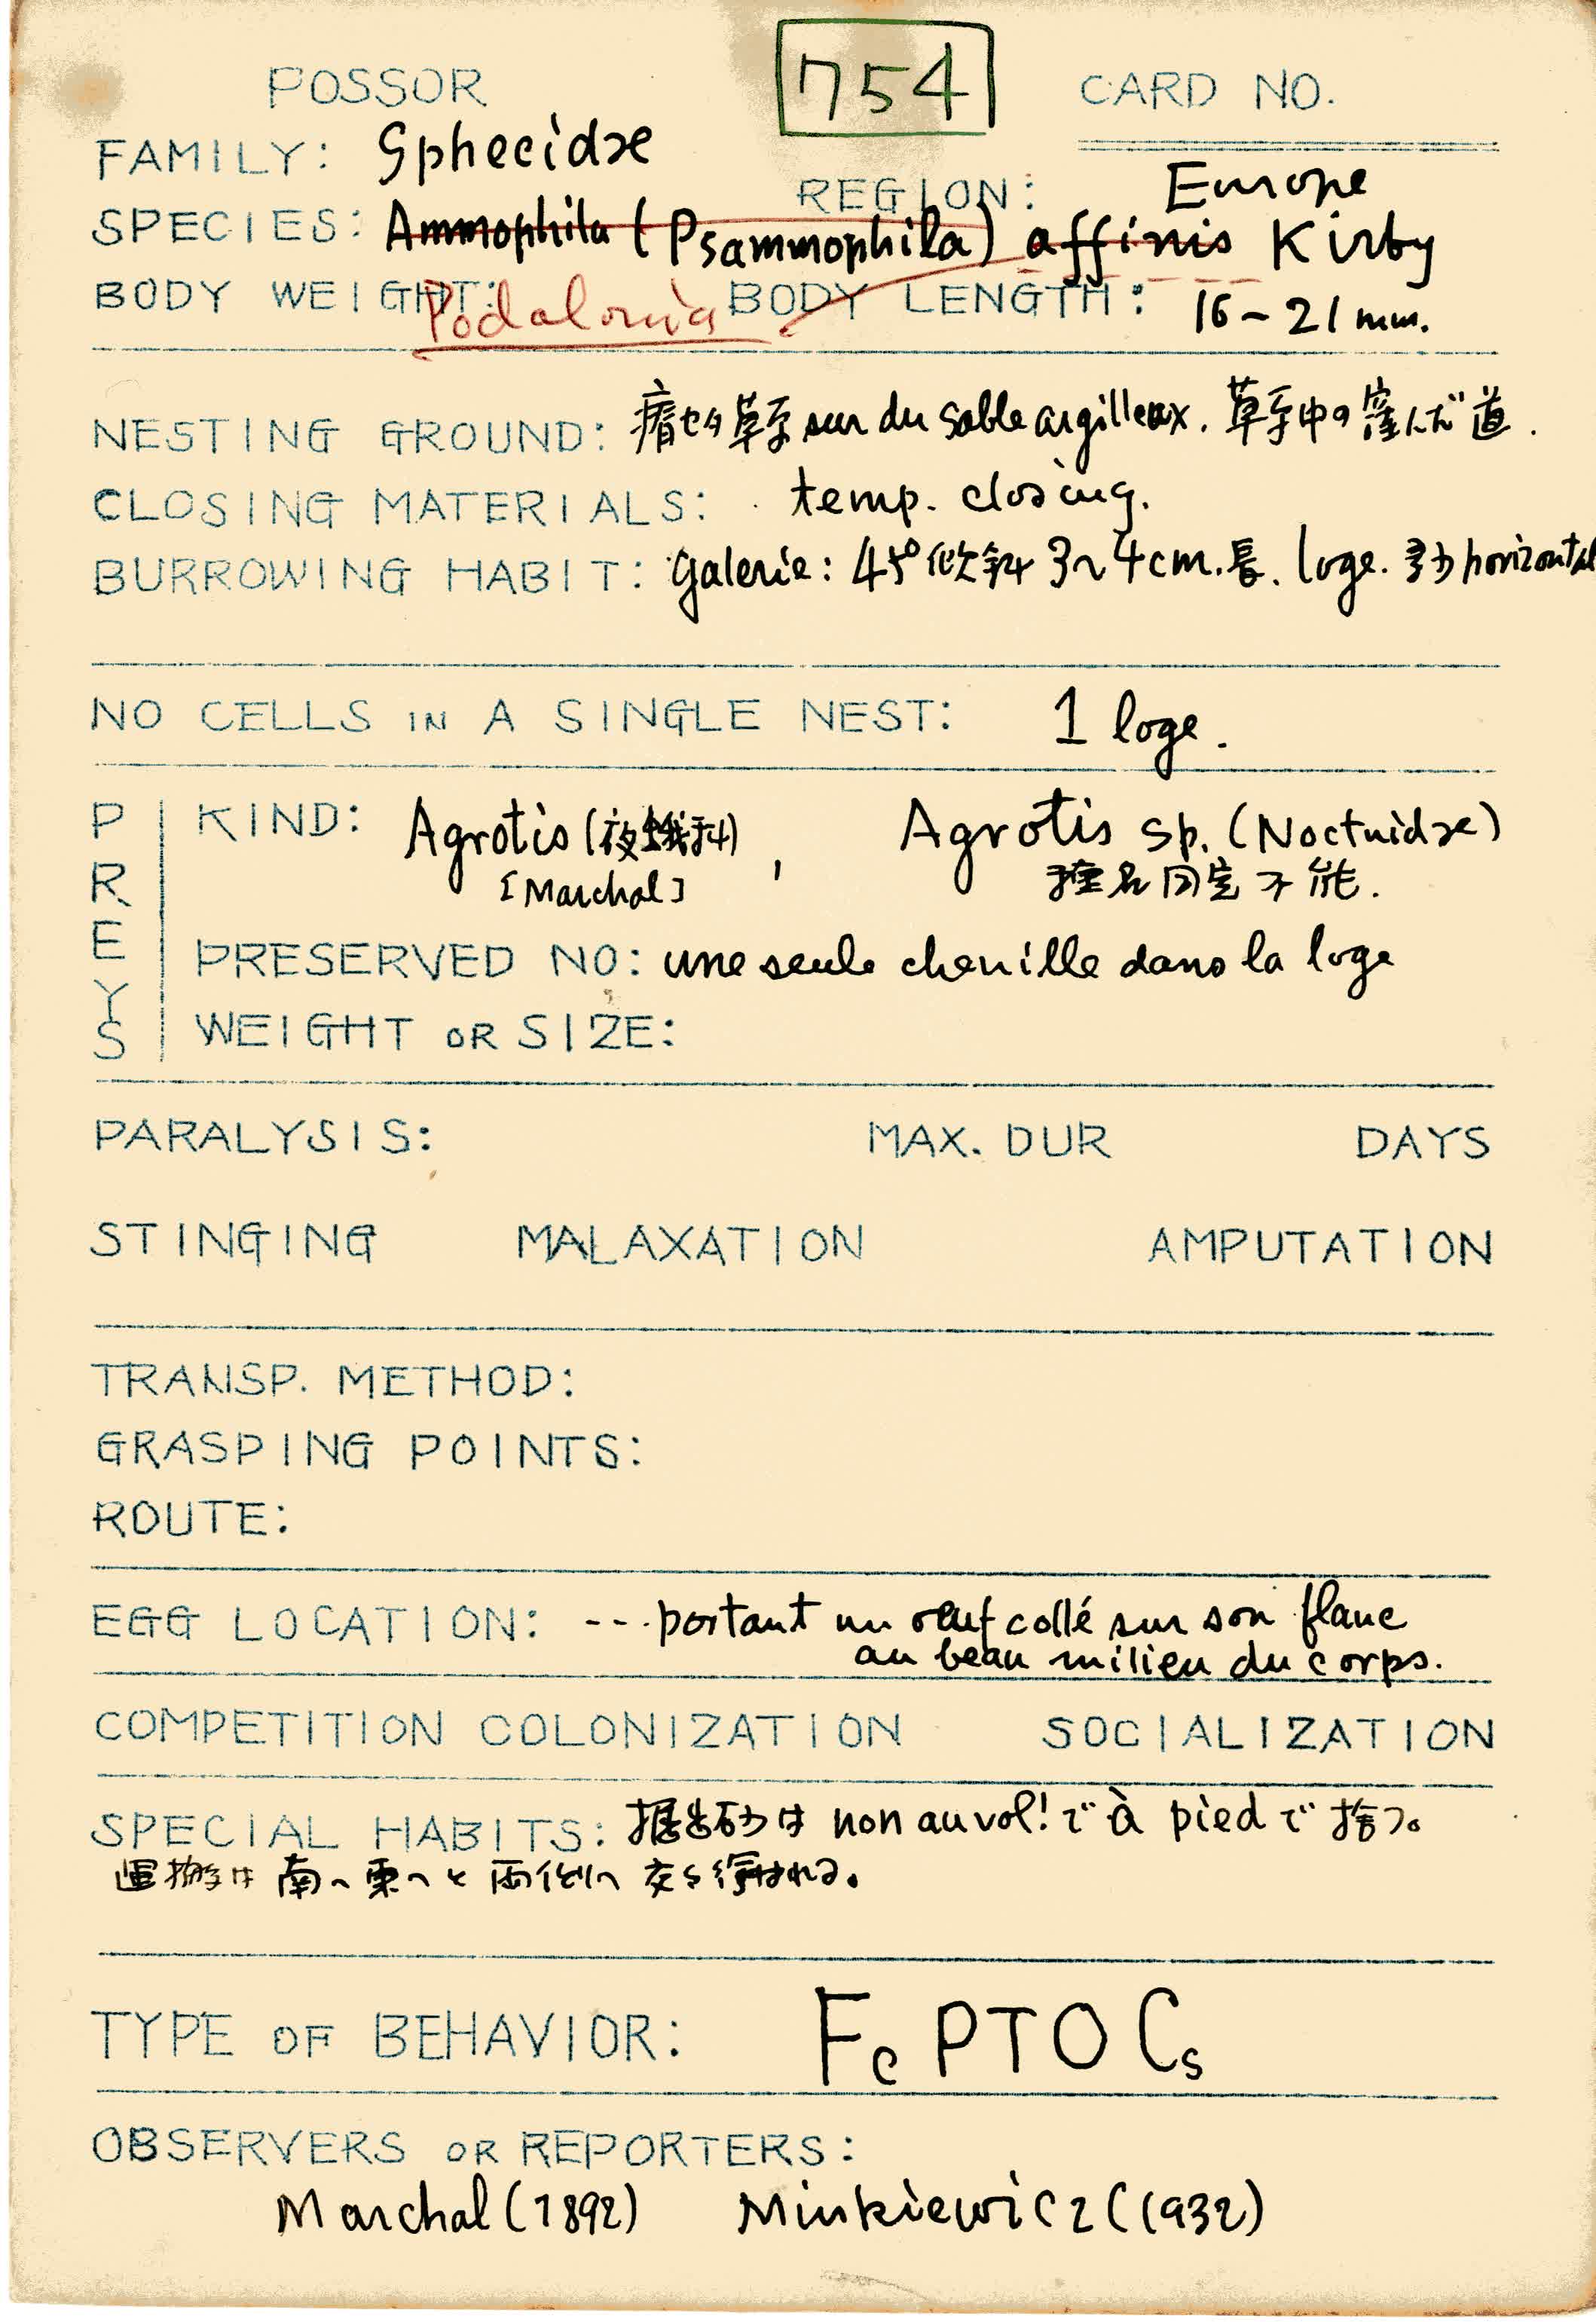 FOSSOR 754 CARD NO.
FAMILY: Sphecidae
REGION: Europe
SPECIES: Ammophila (Psammophila) affinis Kirby
BODY WEIGHT: Podalonia BODY LENGTH: 16~21 mm.
NESTING GROUND: 瘠せタ草原 sur du sable argilleux. 草原中の窪んだ道.
CLOSING MATERIALS: temp. closing.
BURROWING HABIT: galerie: 45° 傾斜 3~4cm.長. loge. horizontal
NO CELLS IN A SINGLE NEST: 1 loge.
PREYS
KIND: Agrotis (夜蛾科), Agrotis sp. (Noctuidae)
[Marchal] 種名同定不能.
PRESERVED NO: une seule chenille dans la loge
WEIGHT OR SIZE:
PARALYSIS: MAX. DUR DAYS
STINGING MALAXATION AMPUTATION
TRANSP. METHOD:
GRASPING POINTS:
ROUTE:
EGG LOCATION: --- portant un œuf collé sur son flanc
au beau milieu du corps.
COMPETITION COLONIZATION SOCIALIZATION
SPECIAL HABITS: 掘出砂は non au vol! で à pied で捨つ。
運搬は南へ東へと 交る 行はれる。
TYPE OF BEHAVIOR: Fc PTOCs
OBSERVERS OR REPORTERS:
Marchal (1892) Minkiewicz (1932)